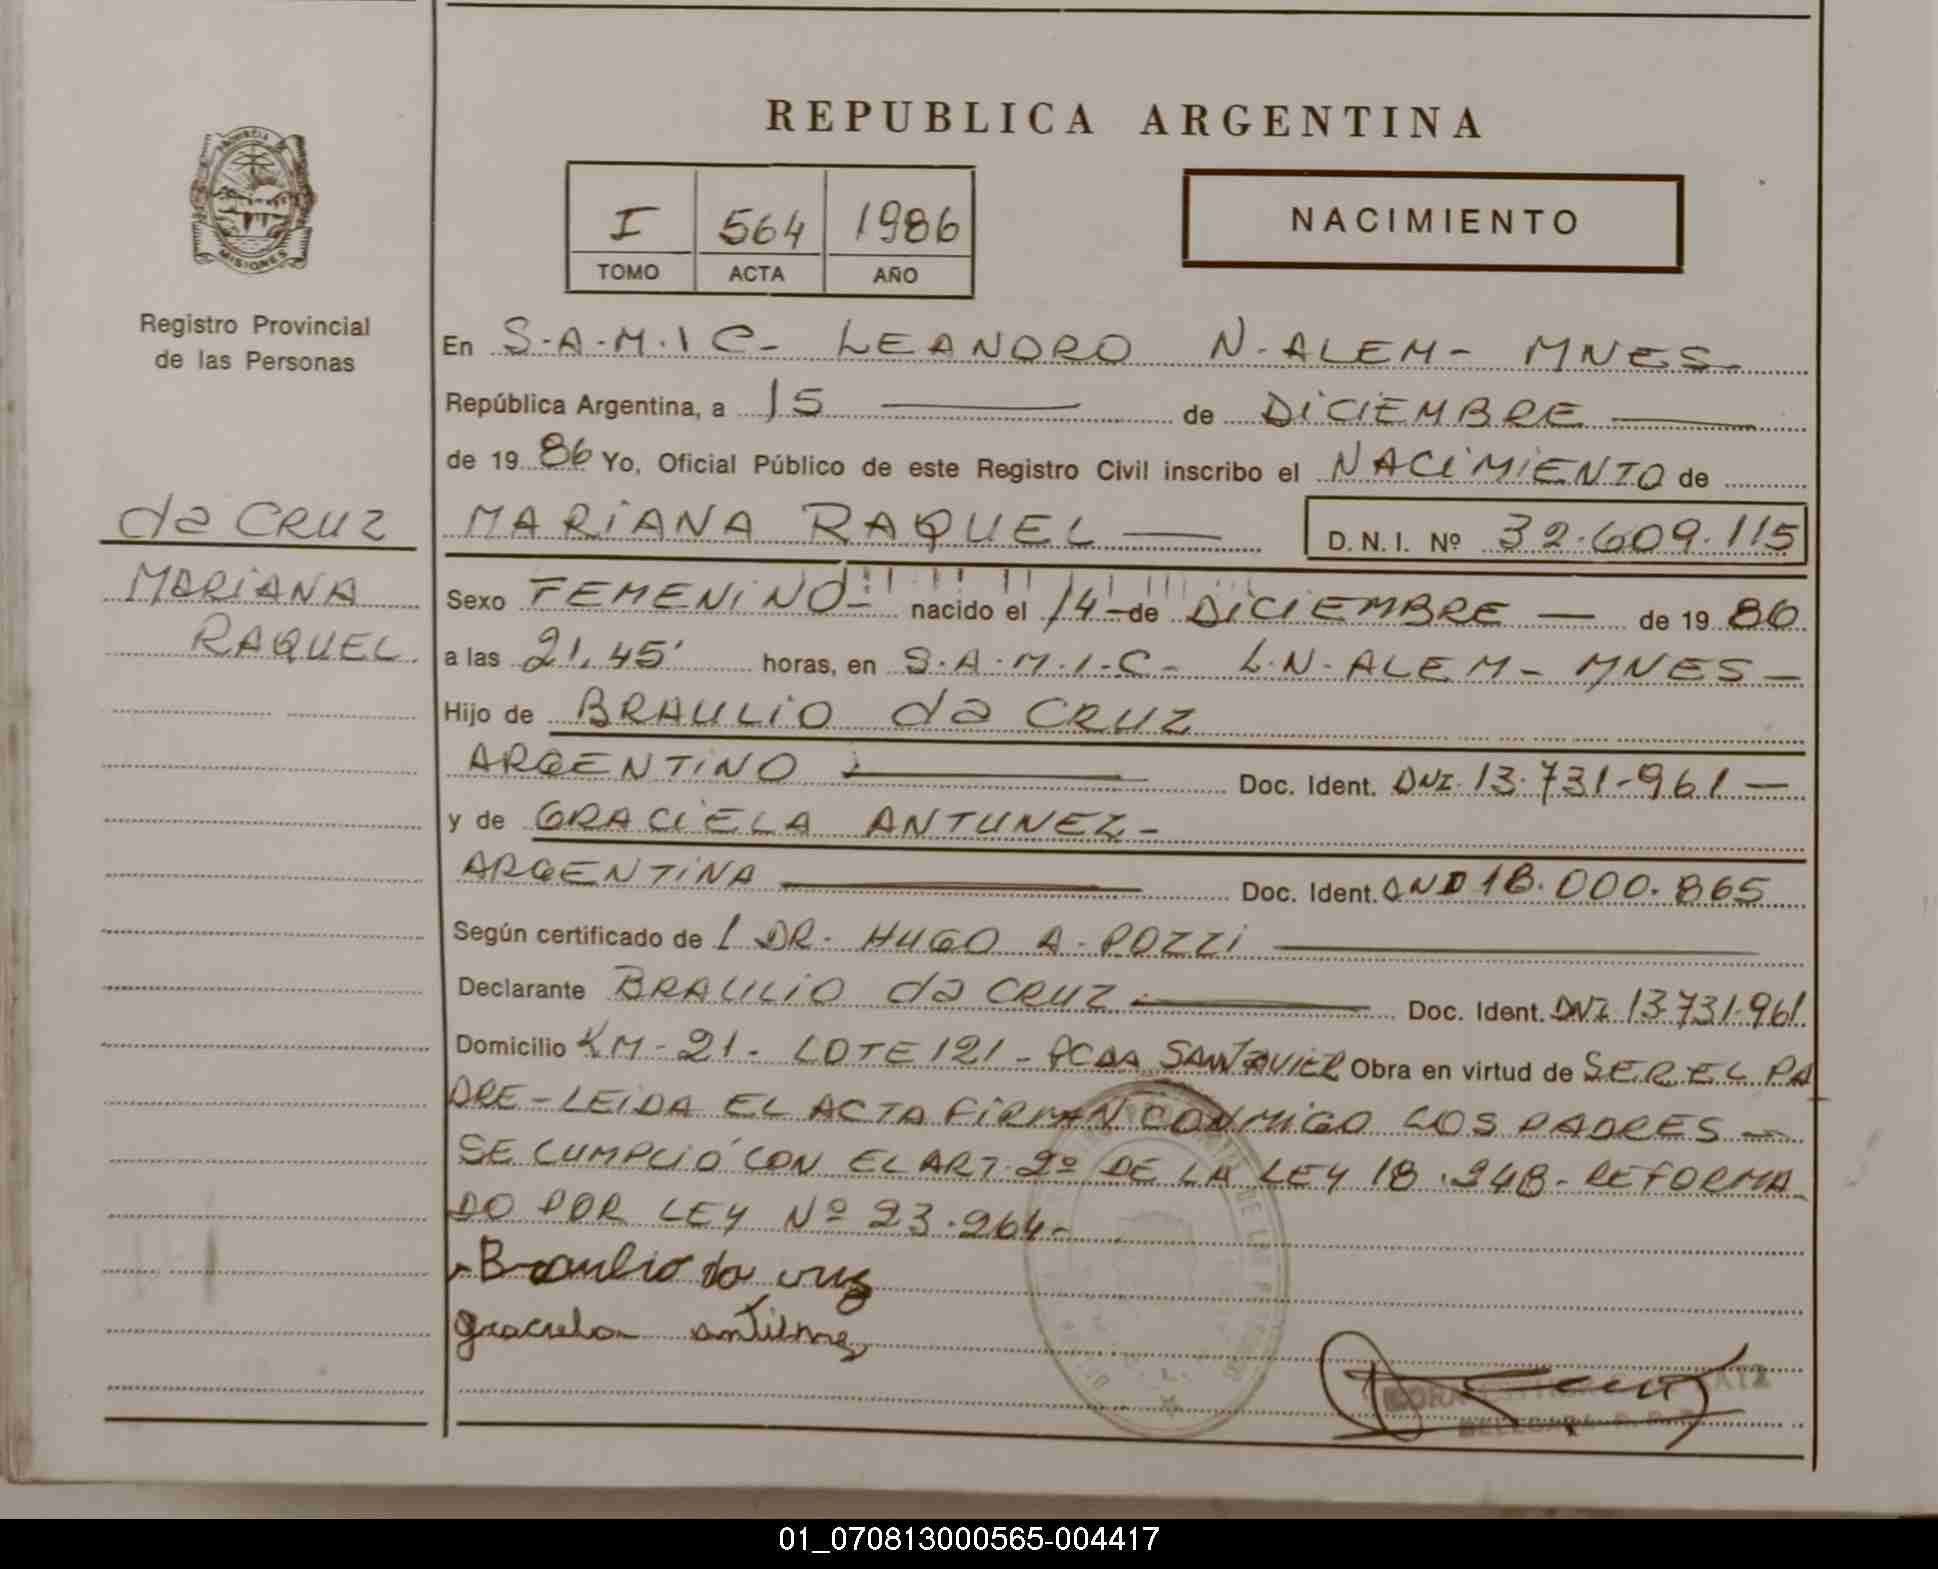 REPUBLICA ARGENTINA
PROVINCIA DE
MISIONES
I 564 1986
TOMO ACTA AÑO
NACIMIENTO
Registro Provincial
de las Personas
En S.A.M.I C- LEANDRO N. ALEM- MNES
República Argentina, a 15 — de DICIEMBRE —
de 19 86 Yo, Oficial Público de este Registro Civil inscribo el NACIMIENTO de
da CRUZ
MARIANA
RAQUEL.
MARIANA RAQUEL — D.N.I. Nº 32.609.115
Sexo FEMENINO- nacido el 14-de DICIEMBRE — de 19 86
a las 21,45' horas, en S.A.M.I.C- L.N. ALEM- MNES-
Hijo de BRAULIO da CRUZ
ARGENTINO — Doc. Ident. DNI. 13.731-961 —
y de GRACIELA ANTUNEZ-
ARGENTINA — Doc. Ident. DND 18.000.865
Según certificado de 1 DR. HUGO A. POZZI —
Declarante BRAULIO da CRUZ — Doc. Ident. DNI 13.731.961
Domicilio KM-21- LOTE 121- PCDA SAN JAVIER Obra en virtud de SER EL PA
DRE-LEIDA EL ACTA FIRMAN CONMIGO LOS PADRES-
SE CUMPLIÓ CON EL ART. 2º DE LA LEY 18.248- REFORMA
DO POR LEY Nº 23.264-
Braulio da cruz
graciela antunez
01_070813000565-004417